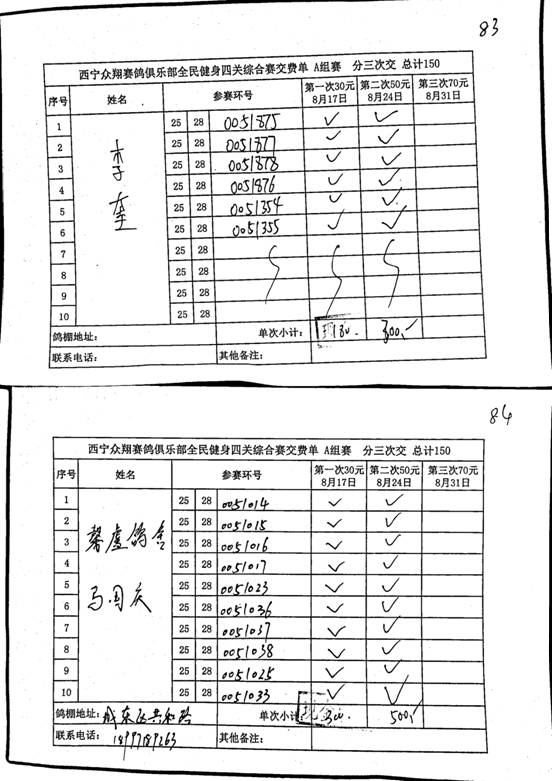 83
西宁众翔赛鸽俱乐部全民健身四关综合赛交费单 A组赛 分三次交 总计150
序号 姓名 参赛环号 第一次30元 8月17日 第二次50元 8月24日 第三次70元 8月31日
1 25 28 0051875 ✓ ✓
2 25 28 0051877 ✓ ✓
3 李 25 28 0051878 ✓ ✓
4 25 28 0051876 ✓ ✓
5 奎 25 28 0051354 ✓ ✓
6 25 28 0051355 ✓ ✓
7 25 28
8 25 28
9 25 28
10 25 28
鸽棚地址: 单次小计: 180. 300.
联系电话: 其他备注:
84
西宁众翔赛鸽俱乐部全民健身四关综合赛交费单 A组赛 分三次交 总计150
序号 姓名 参赛环号 第一次30元 8月17日 第二次50元 8月24日 第三次70元 8月31日
1 25 28 0051014 ✓ ✓
2 25 28 0051015 ✓ ✓
3 馨盧鸽舍 25 28 0051016 ✓ ✓
4 25 28 0051017 ✓ ✓
5 25 28 0051023 ✓ ✓
6 马国庆 25 28 0051036 ✓ ✓
7 25 28 0051037 ✓ ✓
8 25 28 0051038 ✓ ✓
9 25 28 0051025 ✓ ✓
10 25 28 0051033 ✓ ✓
鸽棚地址: 城东区共和路 单次小计 现金 300. 500.
联系电话: 18997189263 其他备注: